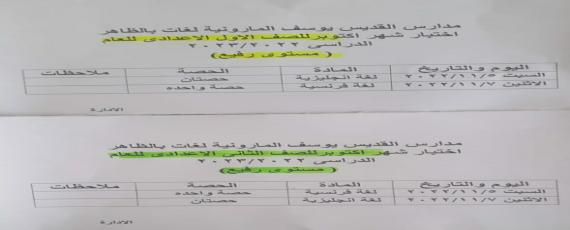 مدارس القديس يوسف المارونية لغات بالظاهر
اختبار شهر اكتوبر للصف الاول الاعدادى للعام
الدراسى ٢٠٢٢/٢٠٢٣
( مستوى رفيع )
اليوم والتاريخ المادة الحصة ملاحظات
السبت ٢٠٢٢/١١/٥ لغة انجليزية حصتان
الاثنين ٢٠٢٢/١١/٧ لغة فرنسية حصة واحده
الادارة
مدارس القديس يوسف المارونية لغات بالظاهر
اختبار شهر اكتوبر للصف الثانى الاعدادى للعام
الدراسى ٢٠٢٢/٢٠٢٣
( مستوى رفيع )
اليوم والتاريخ المادة الحصة ملاحظات
السبت ٢٠٢٢/١١/٥ لغة فرنسية حصة واحده
الاثنين ٢٠٢٢/١١/٧ لغة انجليزية حصتان
الادارة